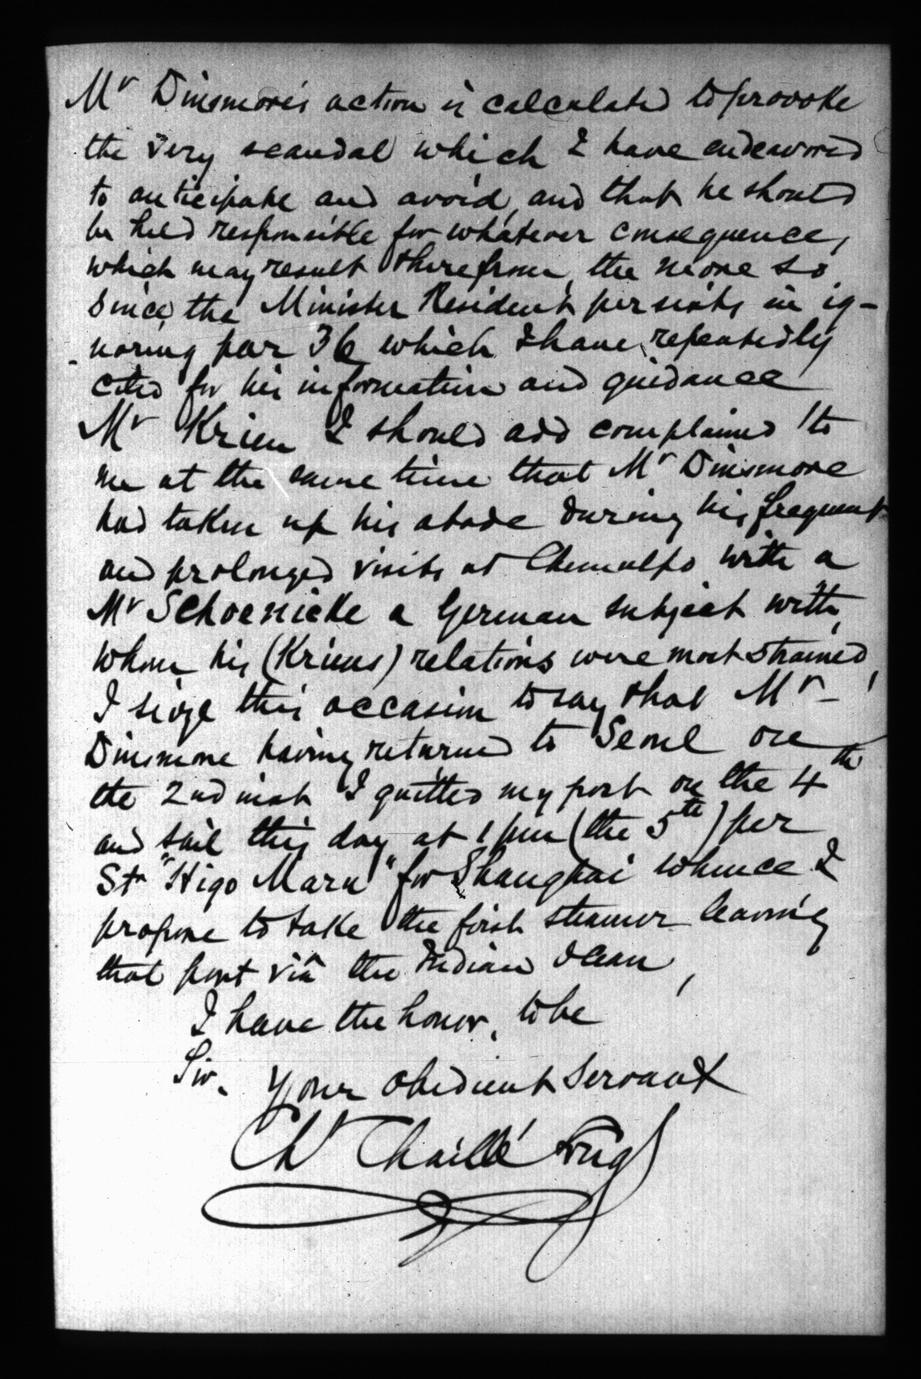 Mr Dinsmore's action is calculated to provoke
the very scandal which I have endeavored
to anticipate and avoid, and that he should
be held responsible for whatever consequence,
which may result therefrom, the more so
since, the Minister Resident persists in ig-
-noring par 36 which I have repeatedly
cited for his information and guidance
Mr Krien I should add complained to
me at the same time that Mr Dinsmore
had taken up his abode during his frequent
and prolonged visits at Chemulpo with a
Mr Schoenicke a German subject with
whom his (Kriens) relations were most strained,
I sieze this occasion to say that Mr -
Dinsmore having returned to Seoul on
the 2nd inst I quitted my post on the 4th
and sail this day at 1 pm (the 5th) per
Str "Higo Maru" for Shanghai whence I
propose to take the first steamer leaving
that port viâ the Indian Ocean,
I have the honor, to be
Sir.
Your obedient Servant
Ch Chaillé Long